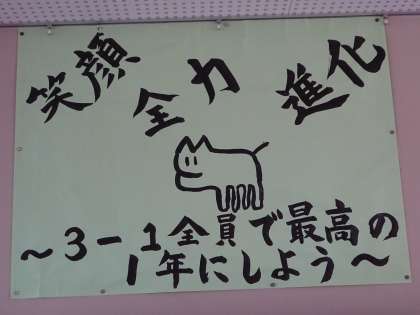 笑顔 全力 進化
～3－1全員で最高の
1年にしよう～